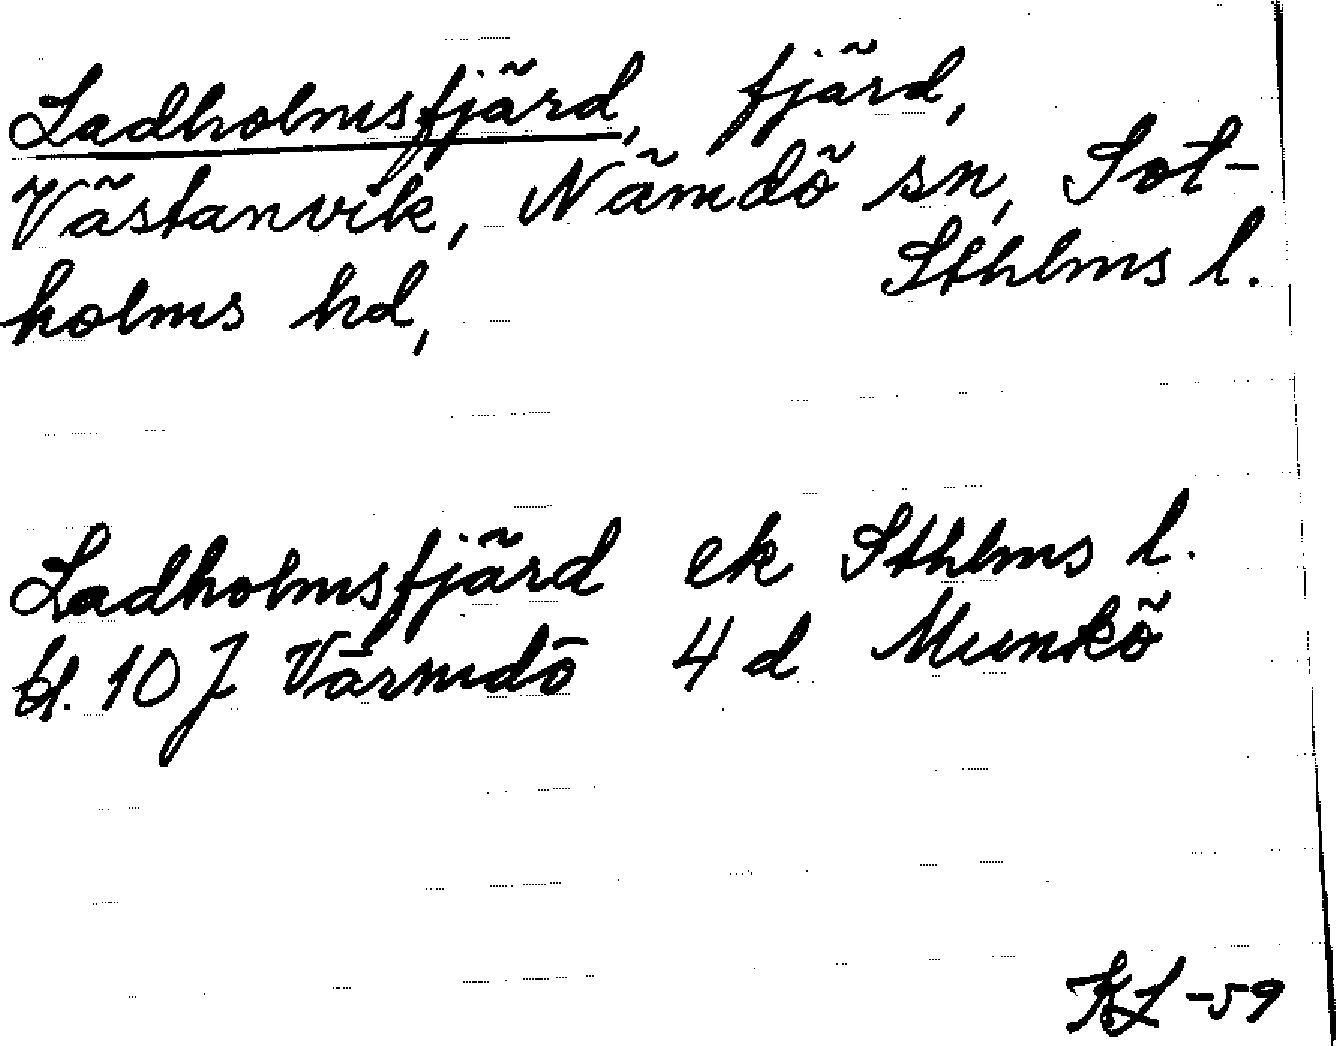 Ladholmsfjärd, fjärd,
Västanvik, Nämdö sn, Sot-
holms hd, Sthlms l.
Ladholmsfjärd ek Sthlms l.
bl. 107 Värmdö 4 d Munkö
KL -59